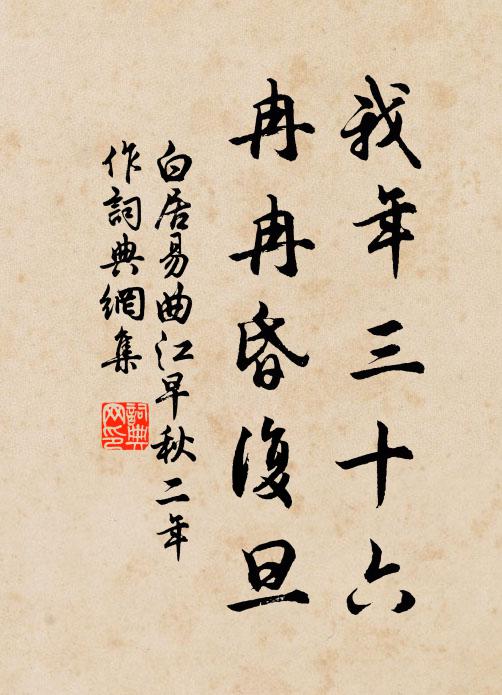 我年三十六
冉冉昏復旦
白居易曲江早秋二年
作詞典網集
詞典
网印